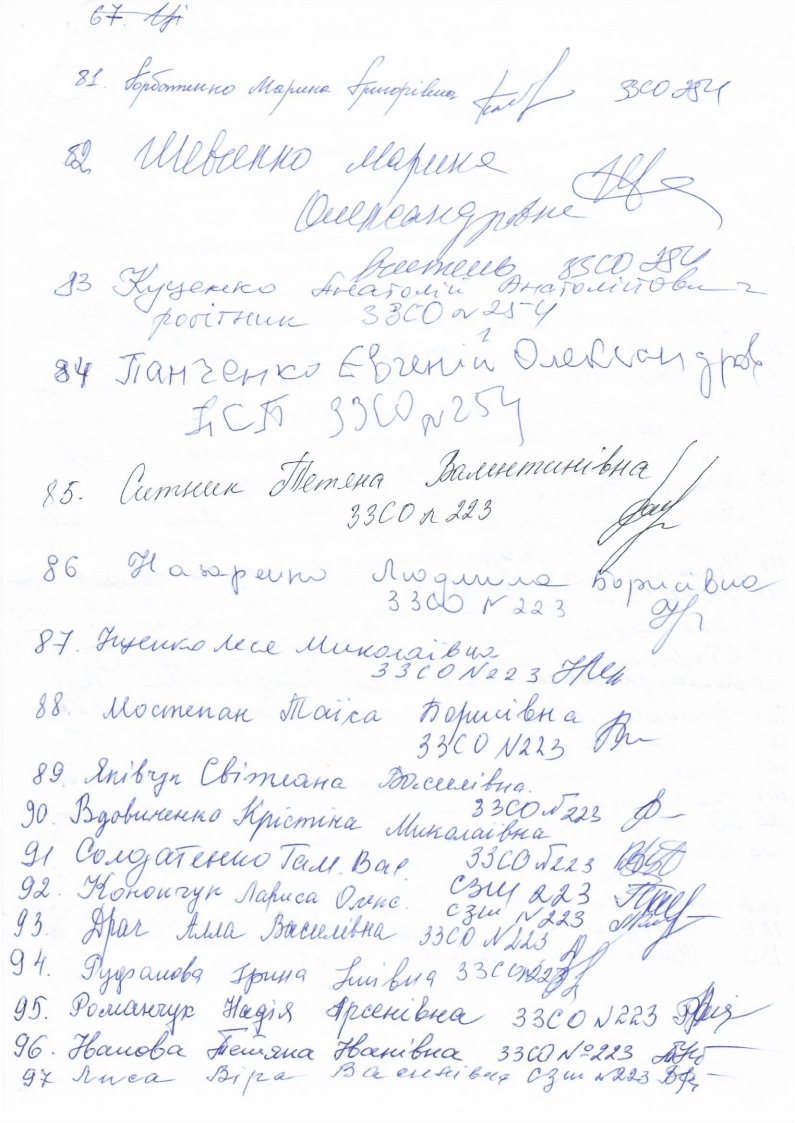 67.
81. Горбатенко Марина Григорівна ЗЗСО 254
82 Шевченко Марина
Олександрівна
вчитель ЗЗСО 254
83 Куценко Анатолій Анатолійович
робітник ЗЗСО №254
84 Панченко Евгеній Олександров
ЗЗСО №254
85. Ситник Тетяна Валентинівна
ЗЗСО №223
86 Назаренко Людмила Борисівна
ЗЗСО №223
87. Іщенко Леся Миколаївна
ЗЗСО №223
88. Мостепан Таїса Борисівна
ЗЗСО №223
89. Світлана Василівна.
ЗЗСО №223
90. Вдовиченко Крістіна Миколаївна
91 Солдатенко Там. Вас. ЗЗСО №223
92. Конончук Лариса Олекс. СЗШ 223
93. Драч Алла Василівна СЗШ №223
ЗЗСО №223
94. Ірина ЗЗСО №223
95. Романчук Надія Арсенівна ЗЗСО №223
96. Іванова Тетяна Іванівна ЗЗСО №223
97 Лиса Віра Василівна СЗШ №223